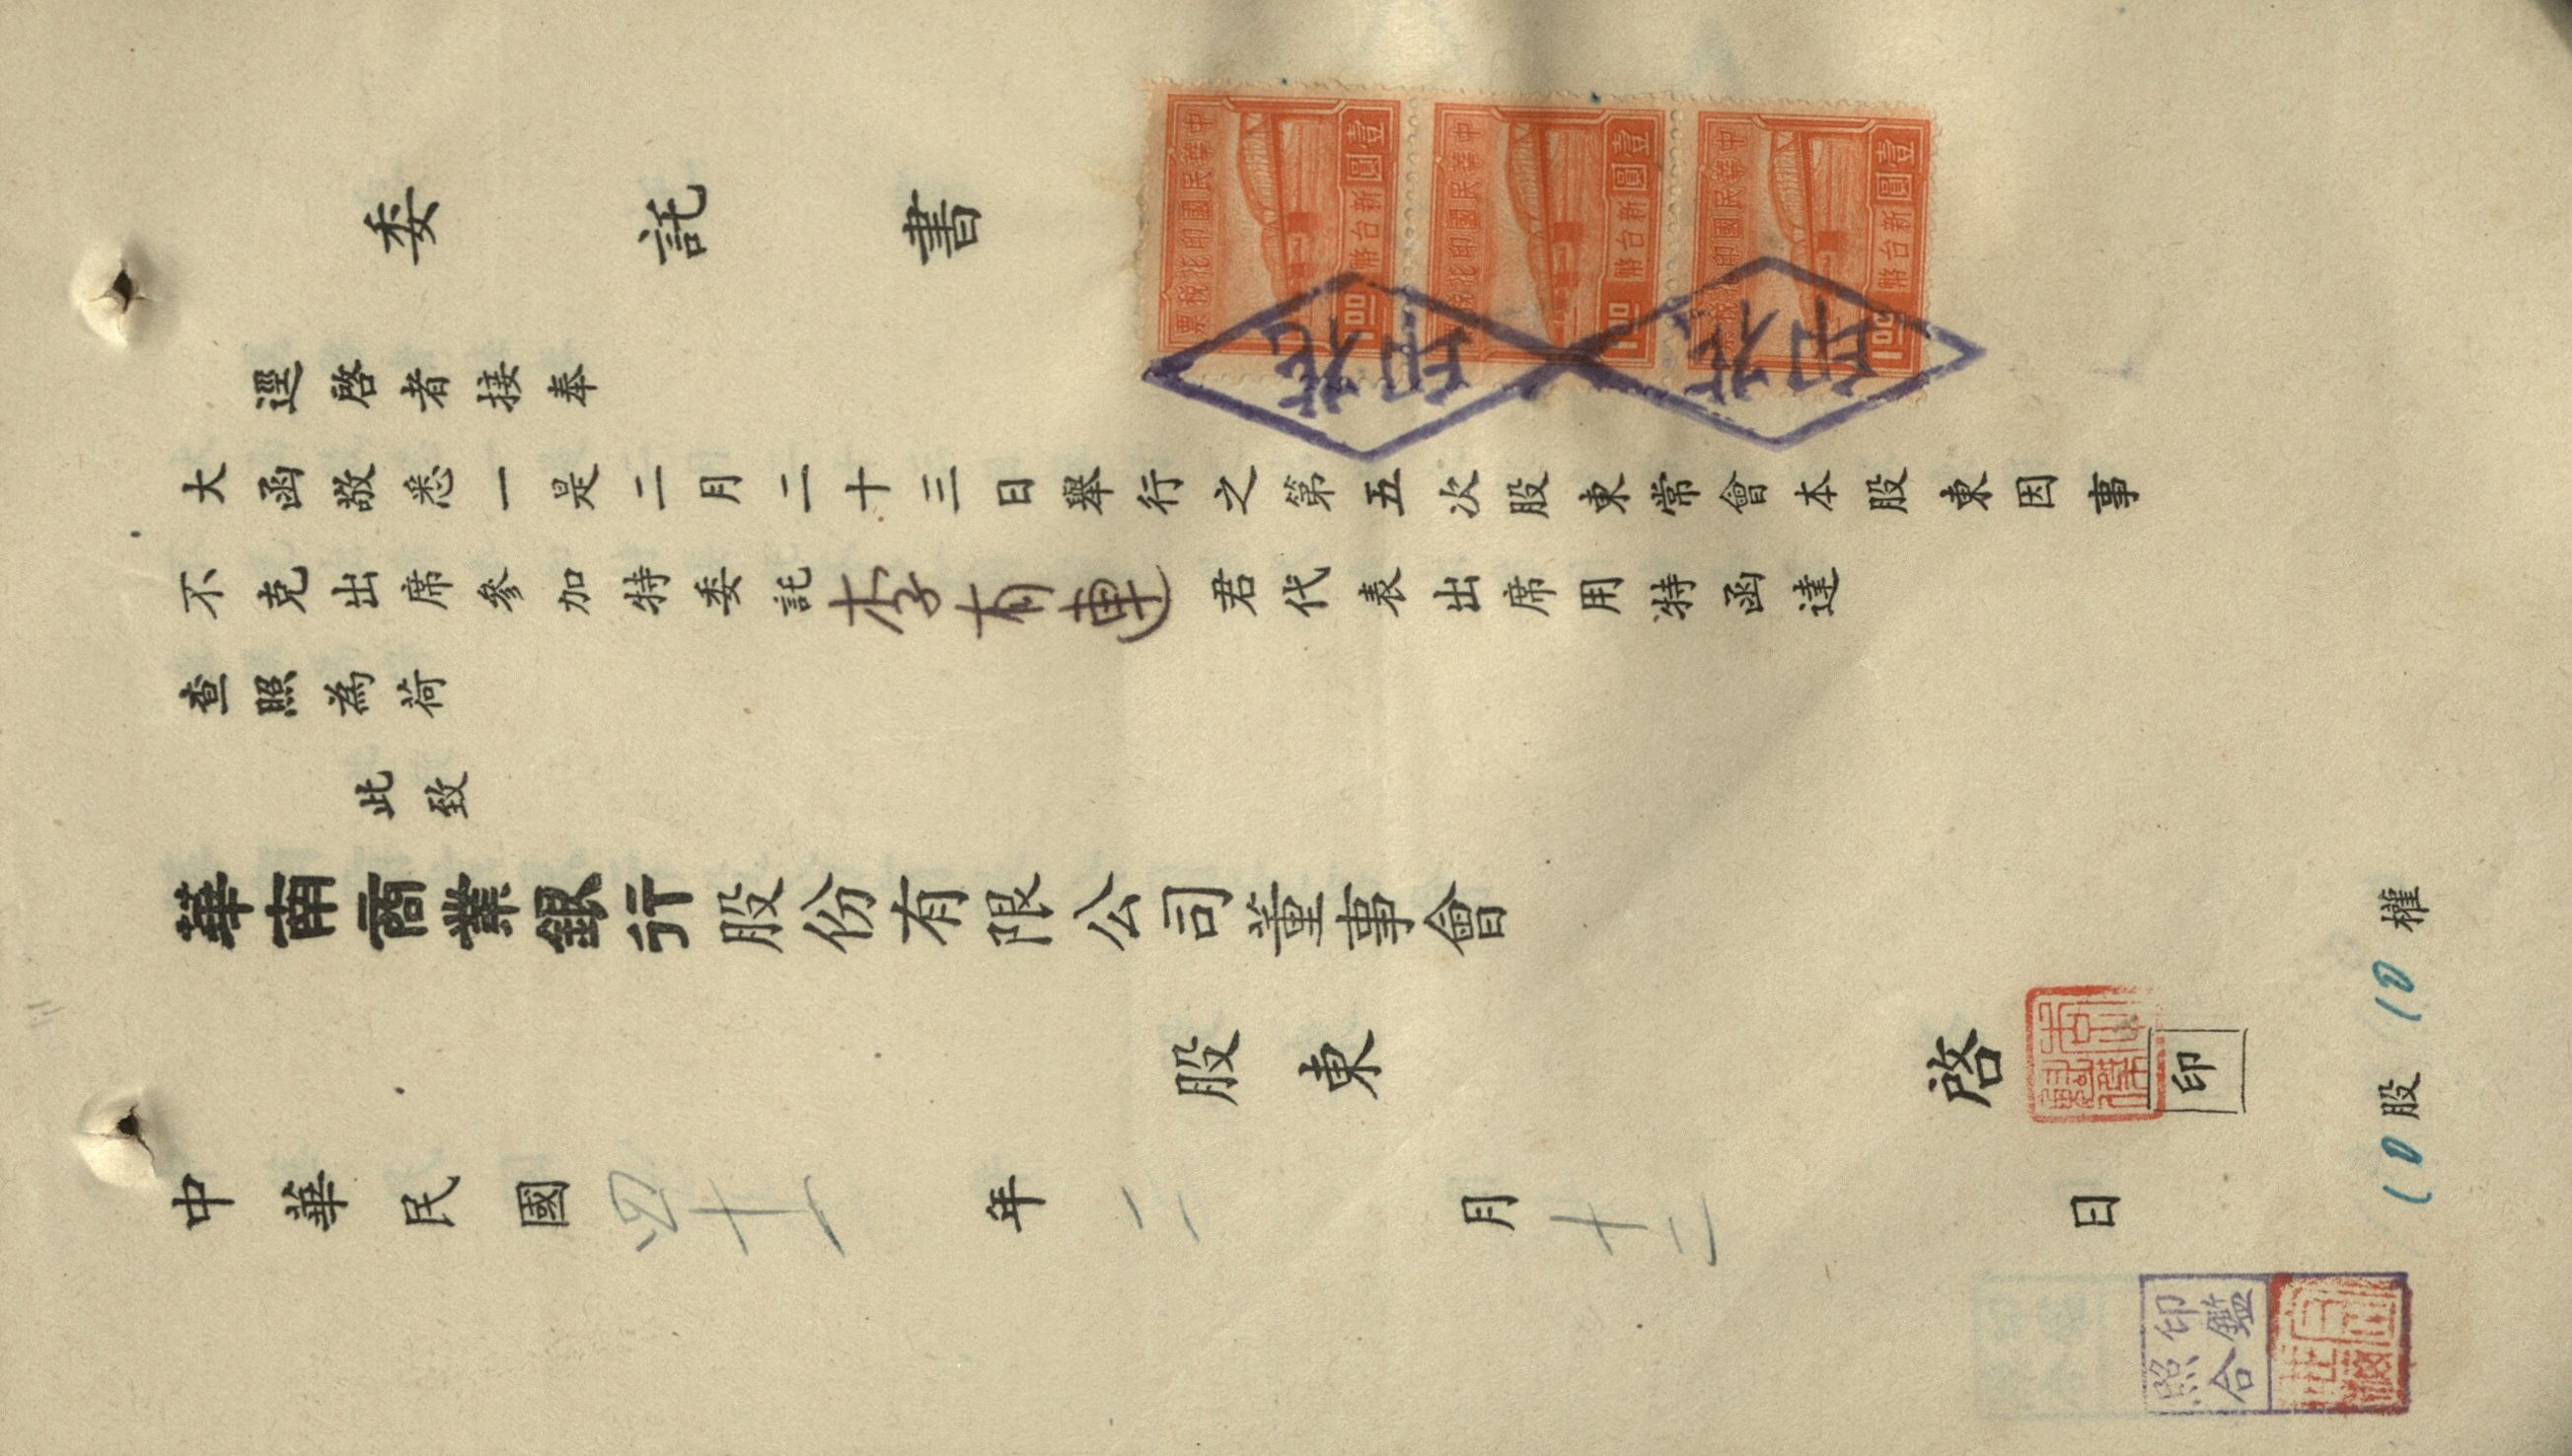 委託書
逕啓者接奉
大函敬悉一是二月二十三日舉行之第五次股東常會本股東因事
不克出席參加特委託李有連君代表出席用特函達
查照為荷
此致
華南商業銀行股份有限公司董事會
股東 啓 印
中華民國四十一年二月十二日
10股10權
中華民國印花稅票
壹圓
新台幣
1.00
中華民國印花稅票
壹圓
新台幣
1.00
中華民國印花稅票
壹圓
新台幣
1.00
印花
印花
印鑑
照合